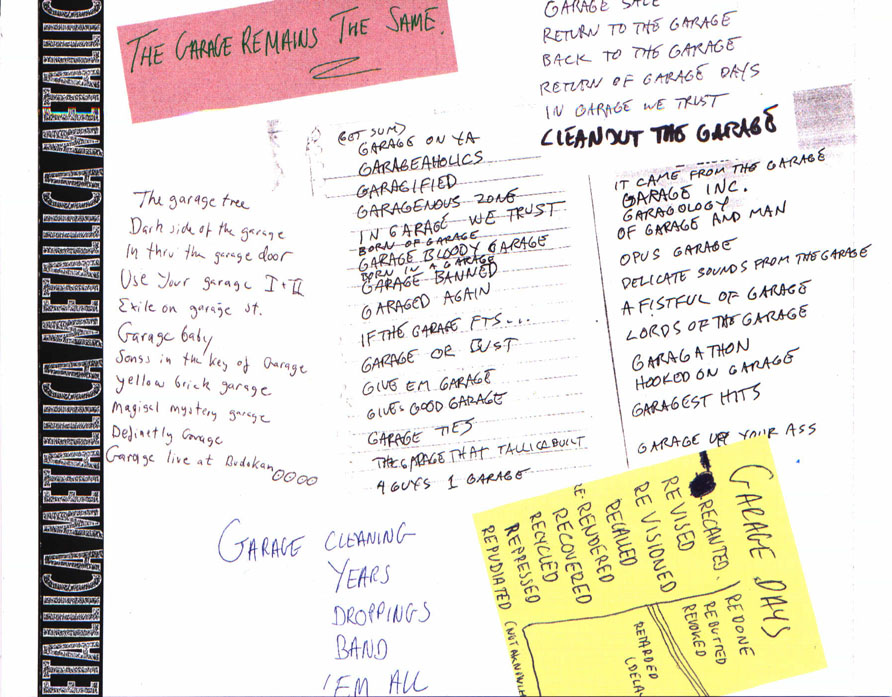 METALLICA METALLICA METALLICA METALLICA
THE GARAGE REMAINS THE SAME.
GARAGE SALE
RETURN TO THE GARAGE
BACK TO THE GARAGE
RETURN OF GARAGE DAYS
IN GARAGE WE TRUST
CLEANOUT THE GARAGE
The garage tree
Dark side of the garage
In thru the garage door
Use Your garage I + II
Exile on garage st.
Garage baby
Songs in the key of Garage
yellow brick garage
Magical mystery garage
Definetly Garage
Garage live at Budokan
(GET SUM)
GARAGE ON YA
GARAGEAHOLICS
GARAGIFIED
GARAGENOUS ZONE
IN GARAGE WE TRUST
BORN OF GARAGE
GARAGE BLOODY GARAGE
BORN IN A GARAGE
GARAGE BANNED
GARAGED AGAIN
IF THE GARAGE FTS....
GARAGE OR DUST
GIVE EM GARAGE
GIVES GOOD GARAGE
GARAGE TIES
THE GARAGE THAT TALLICA BUILT
4 GUYS 1 GARAGE
IT CAME FROM THE GARAGE
GARAGE INC.
GARAGOLOGY
OF GARAGE AND MAN
OPUS GARAGE
DELICATE SOUNDS FROM THE GARAGE
A FISTFUL OF GARAGE
LORDS OF THE GARAGE
GARAGATHON
HOOKED ON GARAGE
GARAGEST HITS
GARAGE UP YOUR ASS
GARAGE CLEANING
YEARS
DROPPINGS
BAND
'EM ALL
GARAGE DAYS
RECANTED
REVISED
RE VISIONED
RECALLED
RE-RENDERED
RECOVERED
RECYCLED
REPRESSED
REPUDIATED
REDONE
REBUTTED
REVOKED
RETARDED